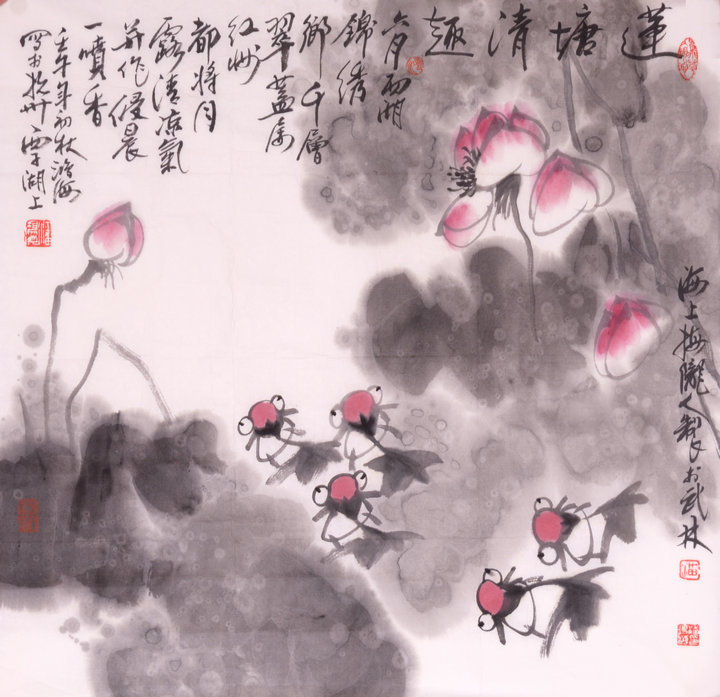 蓮塘清趣
六月西湖
錦綉
鄉千層
翠蓋萬
紅妝
都將月
露清凉氣
并作侵晨
一噴香
壬午年初秋
寫於杭州西子湖上
海上梅隴人製於武林